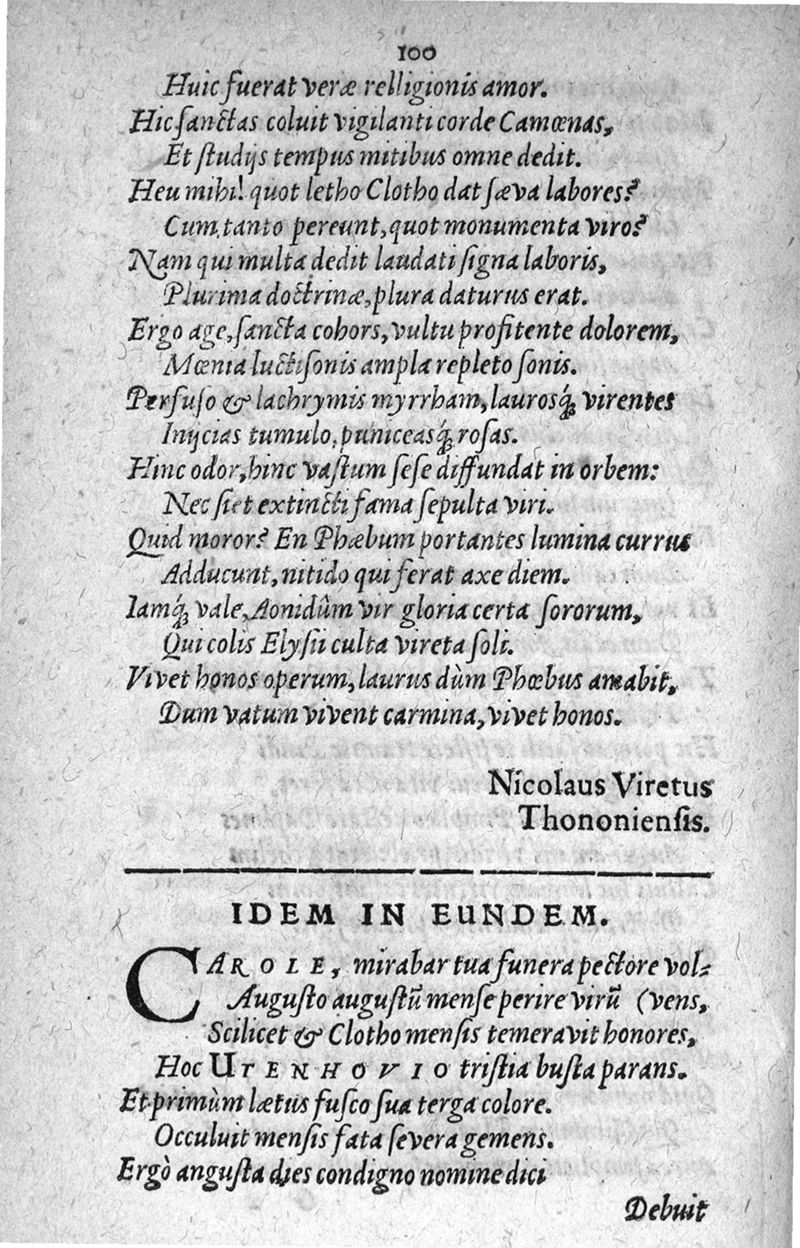 100
Huic fuerat veræ relligionis amor.
Hic sanctas coluit vigilanti corde Camœnas,
Et studijs tempus mitibus omne dedit.
Heu mihi! quot letho Clotho dat sæva labores?
Cum tanto pereunt, quot monumenta viro?
Nam qui multa dedit laudati signa laboris,
Plurima doctrinæ, plura daturus erat.
Ergo age, sancta cohors, vultu profitente dolorem,
Mœnia luctisonis ampla repleto sonis.
Perfuso & lachrymis myrrham, laurosq́; virentes
Inijcias tumulo, puniceasq́; rosas.
Hinc odor, hinc vastum sese diffundat in orbem:
Nec siet extincti fama sepulta viri.
Quid moror? En Phæbum portantes lumina currus
Adducunt, nitido qui ferat axe diem.
Iamq́; vale, Aonidûm vir gloria certa sororum,
Qui colis Elysii culta vireta soli.
Vivet honos operum, laurus dùm Phœbus amabit,
Dum vatum vivent carmina, vivet honos.
Nicolaus Viretus
Thononiensis.
IDEM IN EUNDEM.
CAROLE, mirabar tua funera pectore vol-
Augusto augustũ mense perire virũ (vens,
Scilicet & Clotho mensis temeravit honores,
Hoc UTENHOVIO tristia busta parans.
Et primùm lætus fusco sua terga colore.
Occuluit mensis fata severa gemens.
Ergò angusta dies condigno nomine dici
Debuit